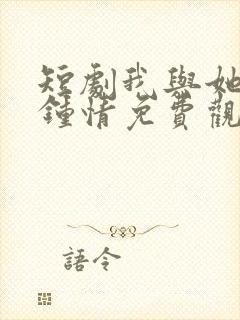 短劇我與她
鍾情免費觀
語令